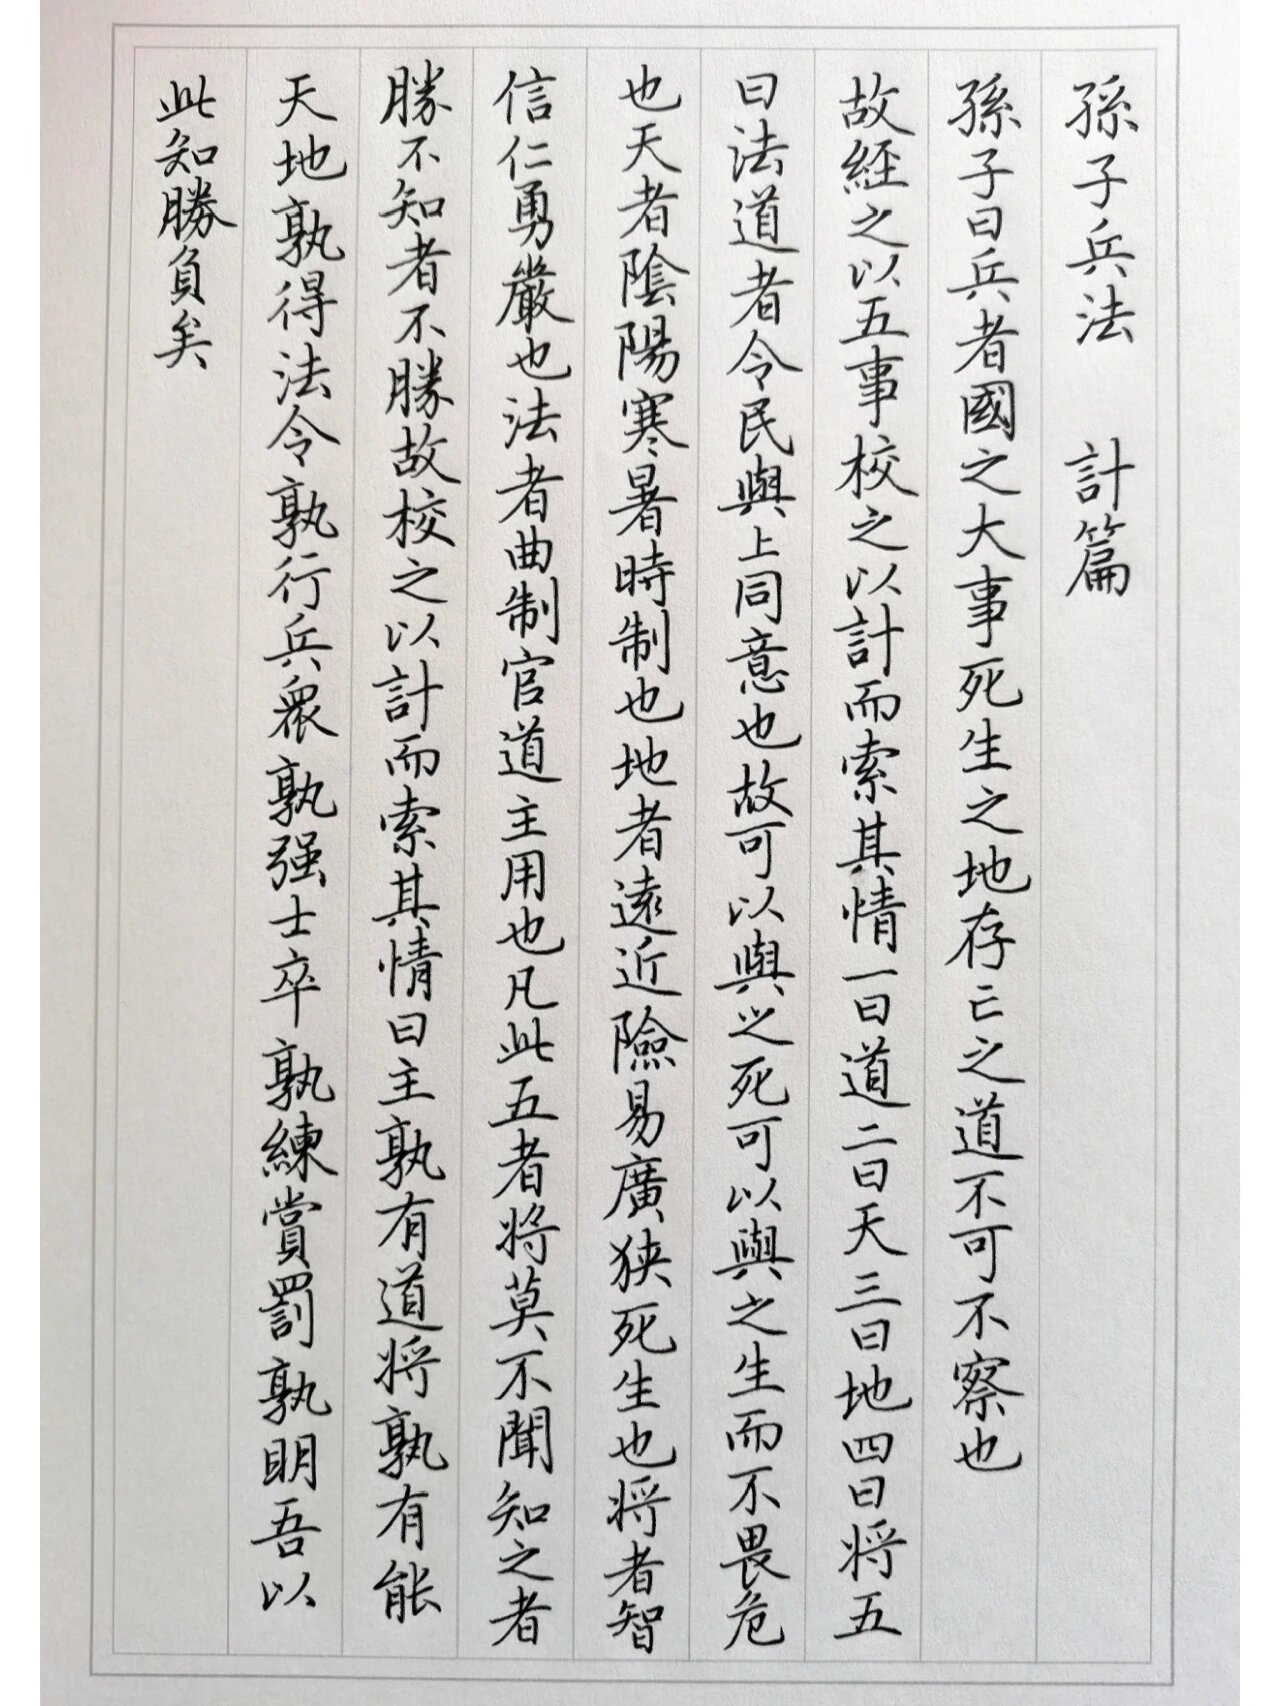 孫子兵法 計篇
孫子曰兵者國之大事死生之地存亡之道不可不察也
故經之以五事校之以計而索其情一曰道二曰天三曰地四曰将五
曰法道者令民與上同意也故可以與之死可以與之生而不畏危
也天者陰陽寒暑時制也地者遠近險易廣狭死生也将者智
信仁勇嚴也法者曲制官道主用也凡此五者将莫不聞知之者
勝不知者不勝故校之以計而索其情曰主孰有道将孰有能
天地孰得法令孰行兵衆孰强士卒孰練賞罰孰明吾以
此知勝負矣